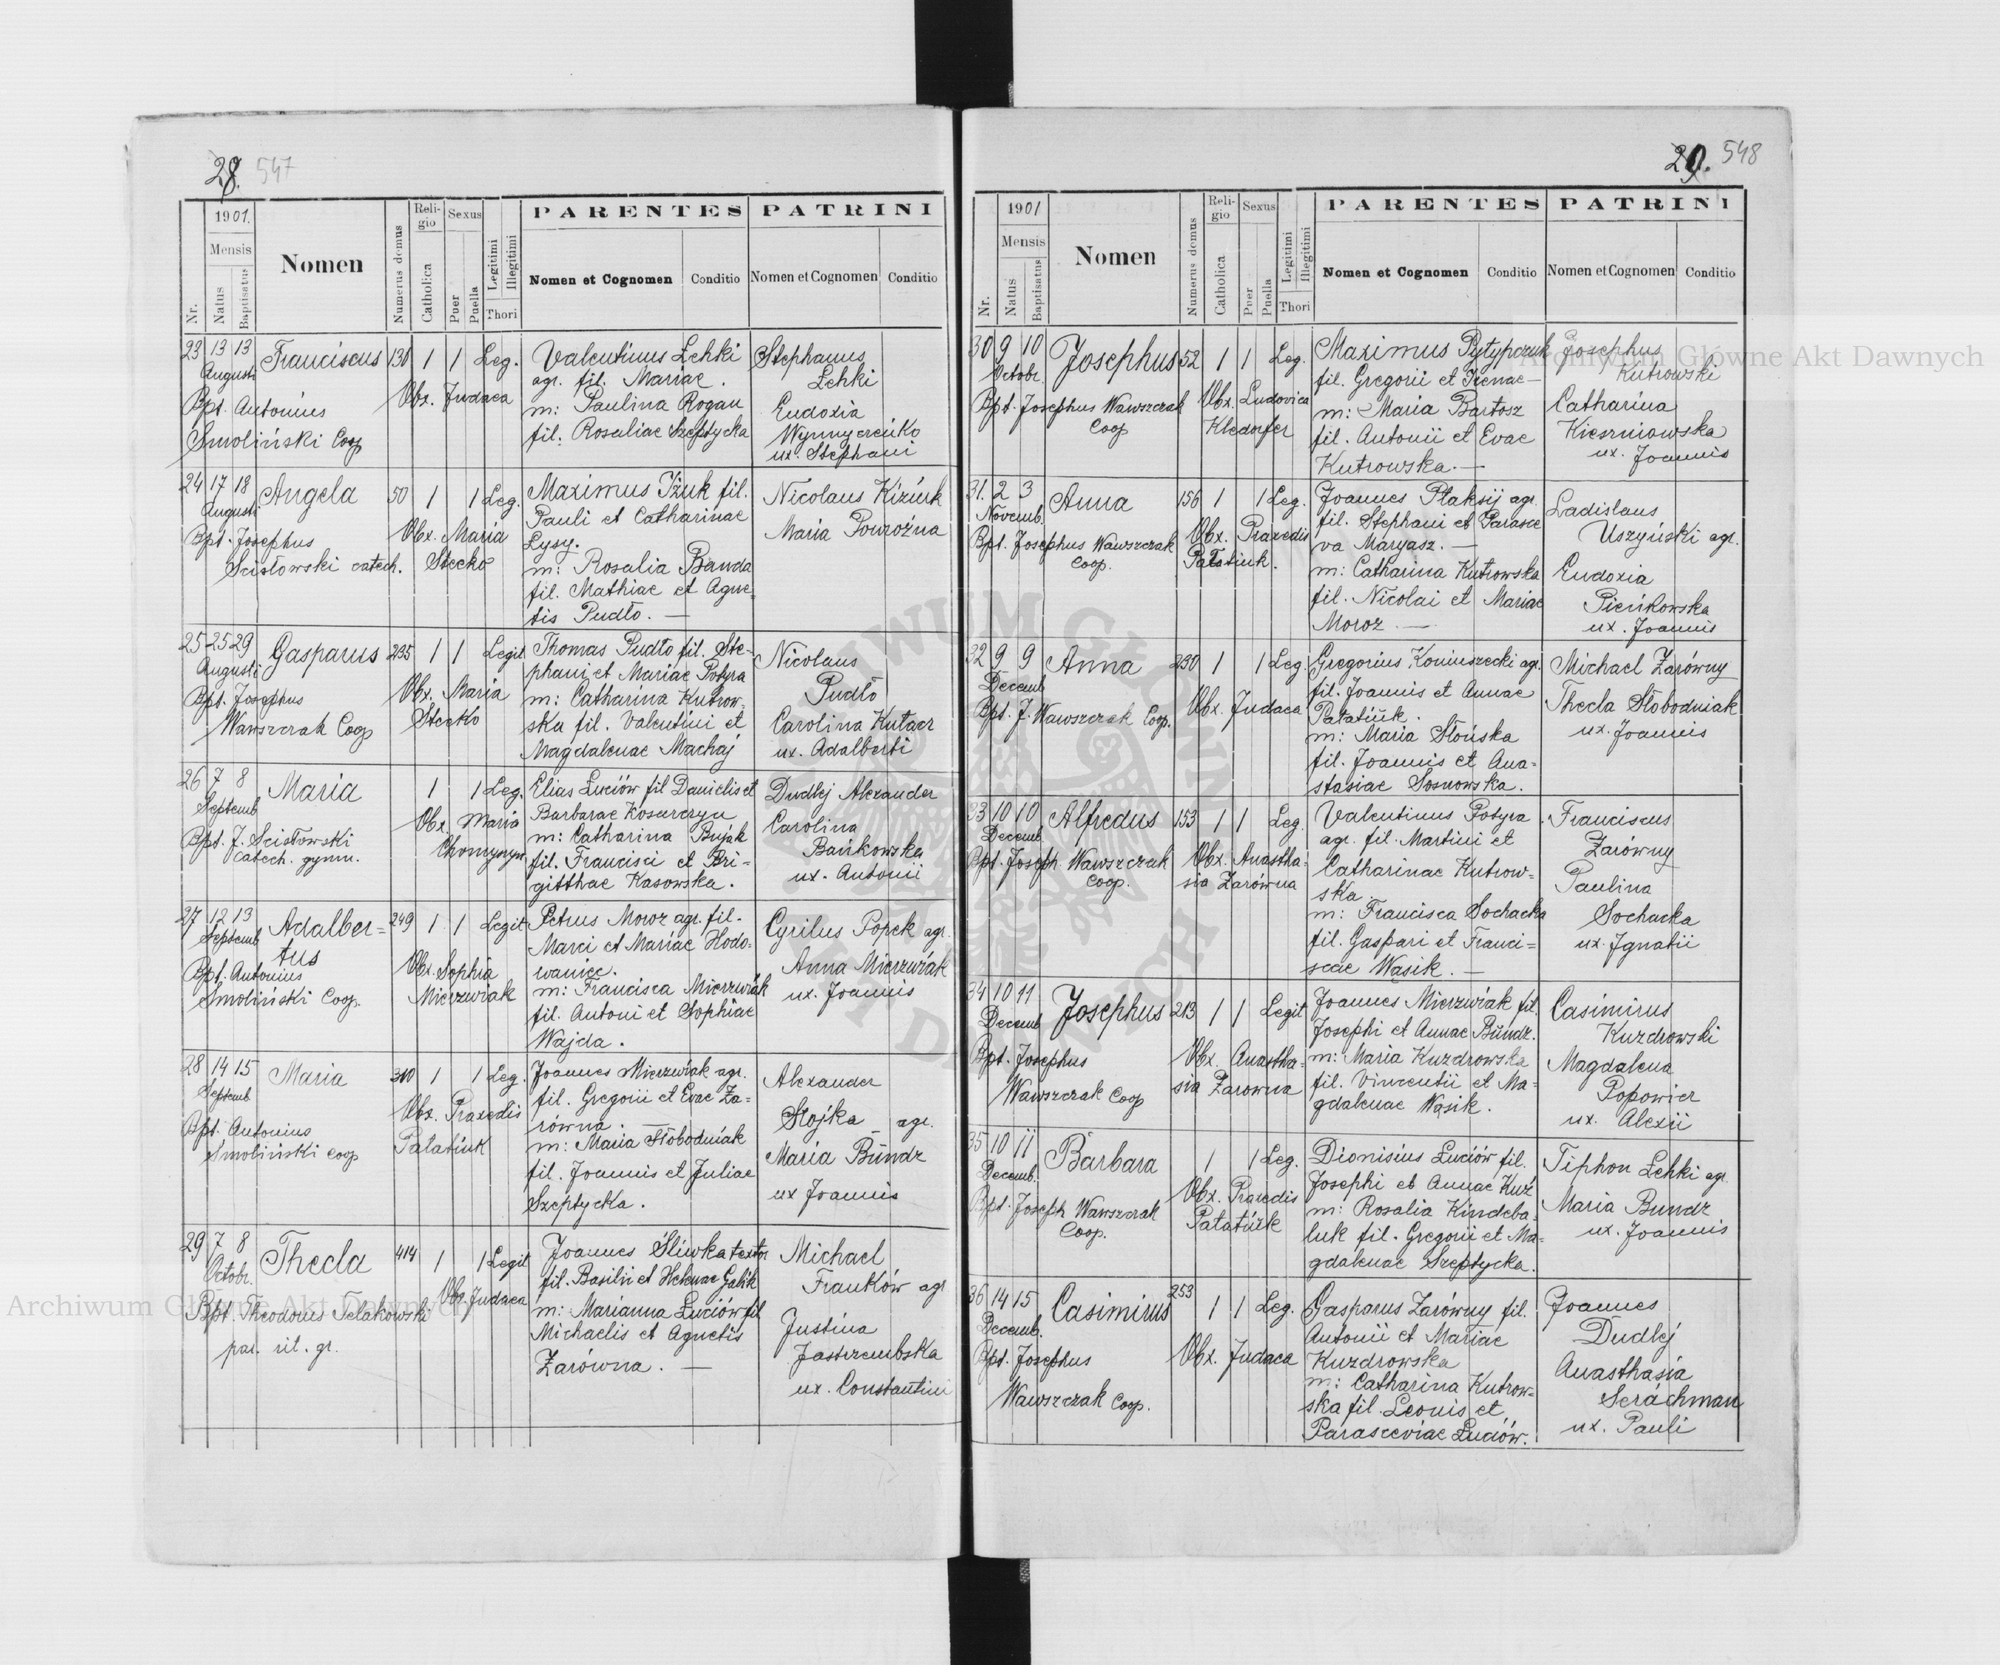 28. 547
1901.
Mensis
Nr.
Natus
Baptisatus
Nomen
Numerus domus
Religio
Catholica
Sexus
Puer
Puella
Legitimi
Illegitimi
Thori
PARENTES
Nomen et Cognomen
Conditio
PATRINI
Nomen et Cognomen
Conditio
23 13 13 Franciscus 130 1 1 Leg.
Augusti
Obx. Judaea
Bpt. Antonius
Smoliński Coop
Valentinus Lehki
agr. fil. Mariae.
m: Paulina Rogan
fil. Rosaliae Szeptycka
Stephanus
Lehki
Eudoxia
ux. Stephani
24 17 18 Angela 50 1 1 Leg.
Augusti
Obx. Maria
Stecko
Bpt. Josephus
Scisłowski catech.
Maximus Iżuk fil.
Pauli et Catharinae
Łysy.
m: Rosalia Banda
fil. Mathiae et Agne-
tis Pudło. —
Nicolaus Kiziuk
Maria Powroźna
25 25 29 Gasparus 235 1 1 Legit
Augusti
Obx. Maria
Stecko
Bpt. Josephus
Wawszczak Coop
Thomas Pudło fil. Ste-
phani et Mariae Potyra
m: Catharina Kutrow-
ska fil. Valentini et
Magdalenae Machaj
Nicolaus
Pudło
Carolina Kutaer
ux. Adalberti
26 7 8 Maria 1 1 Leg.
Septemb
Obx. Maria
Bpt. J. Scisłowski
catech. gymn.
Elias Łuciów fil Danielis et
Barbarae Kosarczyn
m: Catharina Bujak
fil. Francisci et Bri-
gitthae Kasowska.
Dudlej Alexander
Carolina
Bańkowska
ux. Antonii
27 12 13 Adalber= 249 1 1 Legit
Septemb
tus
Obx. Sophia
Mierzwiak
Bpt. Antonius
Smoliński Coop.
Petrus Moroz agr. fil.
Marci et Mariae Hodo-
waniec.
m: Francisca Mierzwiak
fil. Antoni et Sophiae
Wajda.
Cyrilus Popek agr.
Anna Mierzwiak
ux. Joannis
28 14 15 Maria 310 1 1 Leg.
Septemb
Obx. Praxedis
Patatiuk
Bpt. Antonius
Smoliński coop
Joannes Mierzwiak agr.
fil. Gregorii et Evae Ża-
równa. —
m: Maria Słobodniak
fil. Joannis et Juliae
Szeptycka.
Alexander
Stojka — agr.
Maria Bundz
ux Joannis
29 7 8 Thecla 414 1 1 Legit
Octobr.
Obx. Judaea
Bpt. Theodorus Telakowski
par. rit. gr.
Joannes Śliwka textor
fil. Basilii et Helenae Galik
m: Marianna Łuciów fil
Michaelis et Agnetis
Żarówna. —
Michael
Franków agr
Justina
Jastrzembska
ux. Constantini
29. 548
1901
Mensis
Nr.
Natus
Baptisatus
Nomen
Numerus domus
Religio
Catholica
Sexus
Puer
Puella
Legitimi
Illegitimi
Thori
PARENTES
Nomen et Cognomen
Conditio
PATRINI
Nomen et Cognomen
Conditio
30 9 10 Josephus 52 1 1 Leg.
Octobr.
Obx. Ludovica
Kledorfer
Bpt. Josephus Wawszczak
Coop
Maximus Pytypczuk
fil. Gregorii et Irenae —
m: Maria Bartosz
fil. Antonii et Evae
Kutrowska. —
Josephus
Kutrowski
Catharina
Kieszniowska
ux. Joannis
31. 2 3 Anna 156 1 1 Leg.
Novemb.
Obx. Praxedis
Patatiuk.
Bpt. Josephus Wawszczak
Coop.
Joannes Ptaksij agr.
fil. Stephani et Parasce
va Maryasz. —
m: Catharina Kutrowska
fil. Nicolai et Mariae
Moroz —
Ladislaus
Uszyński agr.
Eudoxia
Pieńkowska
ux. Joannis
32 9 9 Anna 230 1 1 Leg.
Decemb
Obx. Judaea
Bpt. J. Wawszczak Coop.
Gregorius Koniuszecki agr.
fil. Joannis et Annae
Patatiuk.
m: Maria Słońska
fil. Joannis et Ana-
stasiae Sosnowska.
Michael Żarówny
Thecla Słobodniak
ux. Joannis
33 10 10 Alfredus 153 1 1 Leg.
Decemb
Obx. Anastha-
sia Żarówna
Bpt. Joseph Wawszczak
Coop.
Valentinus Potyra
agr. fil. Martini et
Catharinae Kutrow-
ska.
m: Francisca Sochacka
fil. Gaspari et Franci-
scae Wąsik. —
Franciscus
Żarówny
Paulina
Sochacka
ux. Ignatii
34 10 11 Josephus 213 1 1 Legit
Decemb
Obx. Anastha-
sia Żarowna
Bpt. Josephus
Wawszczak Coop
Joannes Mierzwiak fil.
Josephi et Annae Bundz.
m: Maria Kuzdrowska
fil. Vincentii et Ma-
gdalenae Wąsik.
Casimirus
Kuzdrowski
Magdalena
Popowicz
ux. Alexii
35 10 11 Barbara 1 1 Leg.
Decemb.
Obx. Praxedis
Patatiuk
Bpt. Joseph Wawszczak
Coop.
Dionisius Łuciów fil.
Josephi et Annae Kuź
m: Rosalia Kindeba-
luk fil. Gregorii et Ma-
gdalenae Szeptycka.
Tiphon Lehki agr.
Maria Bundz
ux. Joannis
36 14 15 Casimirus 253 1 1 Leg.
Decemb.
Obx. Judaea
Bpt. Josephus
Wawszczak Coop.
Gasparus Żarówny fil.
Antonii et Mariae
Kuzdrowska
m: Catharina Kutrow-
ska fil. Leonis et
Parasceviae Łuciów.
Joannes
Dudlej
Anasthasia
Serachman
ux. Pauli
Archiwum Główne Akt Dawnych
Archiwum Główne Akt Dawnych
ARCHIWUM GŁÓWNE AKT DAWNYCH